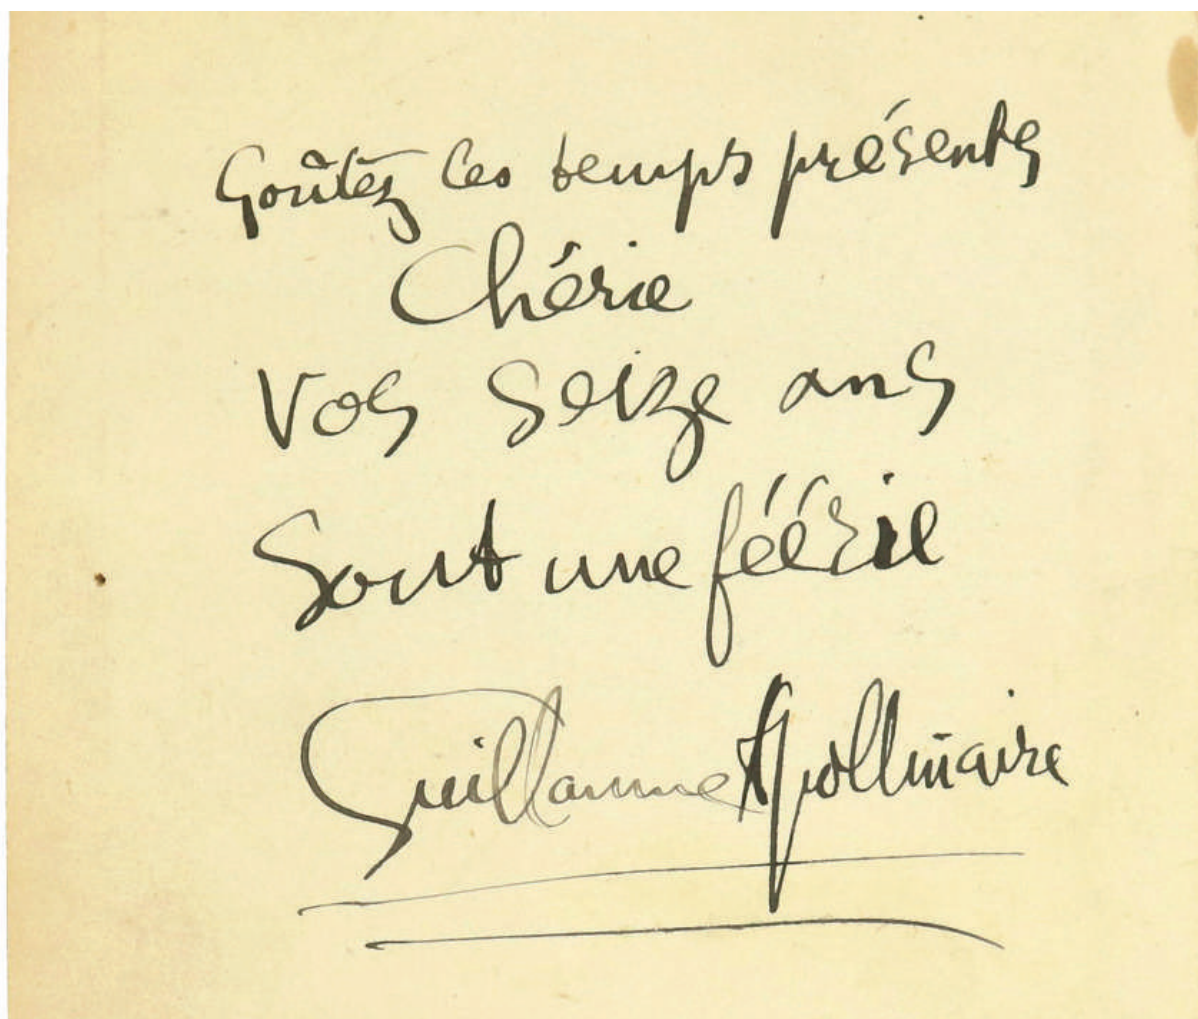 Goûtez les temps présents
Chérie
Vos seize ans
Sont une féérie
Guillaume Apollinaire